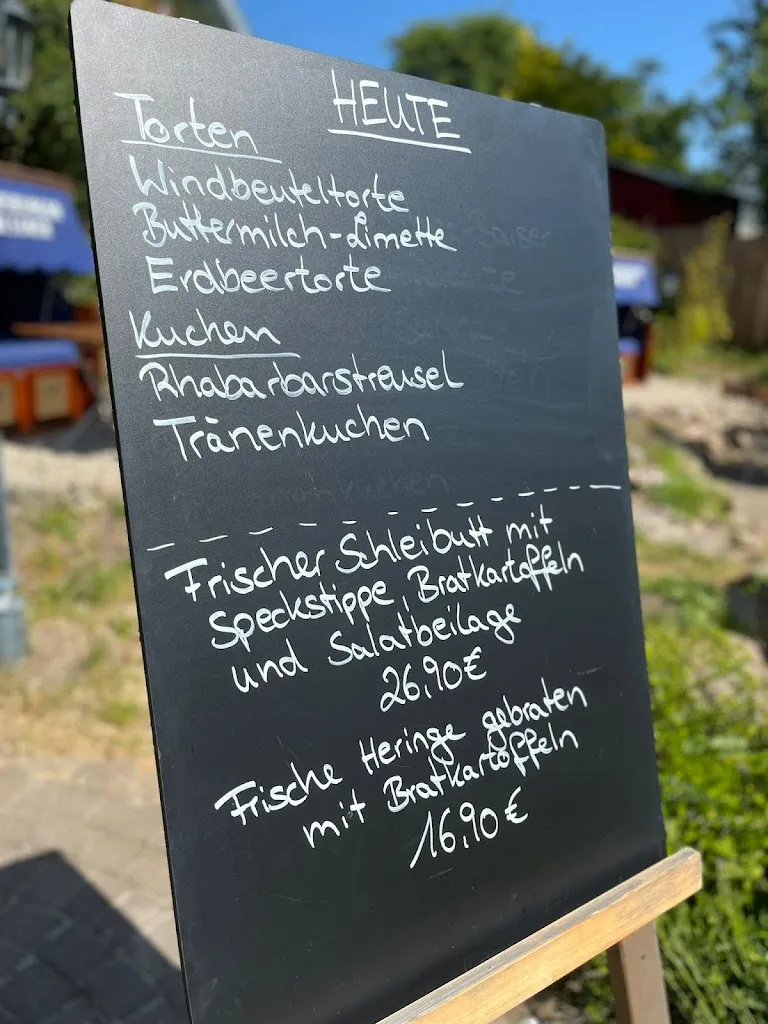 HEUTE
Torten
Windbeuteltorte
Buttermilch-Limette
Erdbeertorte
Kuchen
Rhabarbarstreusel
Tränenkuchen
Frischer Schleibutt mit
Speckstippe, Bratkartoffeln
und Salatbeilage
26,90€
Frische Heringe gebraten
mit Bratkartoffeln
16,90€